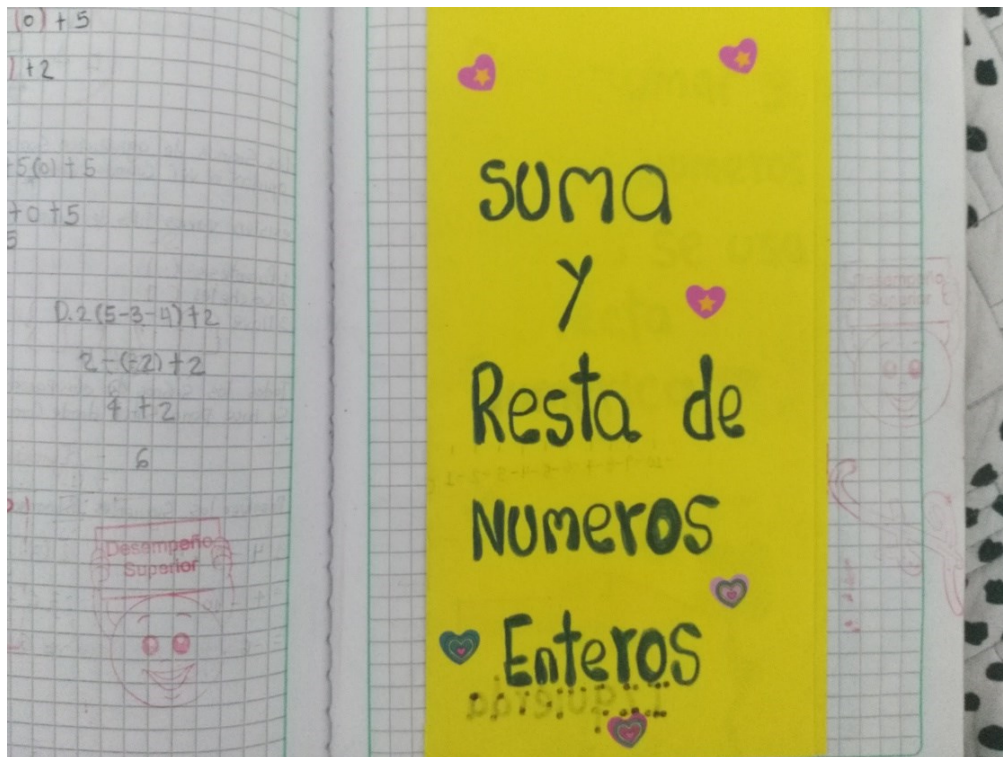 (0) + 5
) + 2
+5(0) + 5
+0 +5
5
D. 2(5-3-4)+2
2-(-2)+2
4 + 2
6
Desempeño
Superior
suma
y
Resta de
Numeros
Enteros